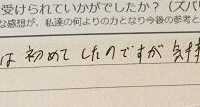 受けられていかがでしたか？（ズバリ
な感想が、私達の何よりの力となり今後の参考と
は 初めて したのですが 気持